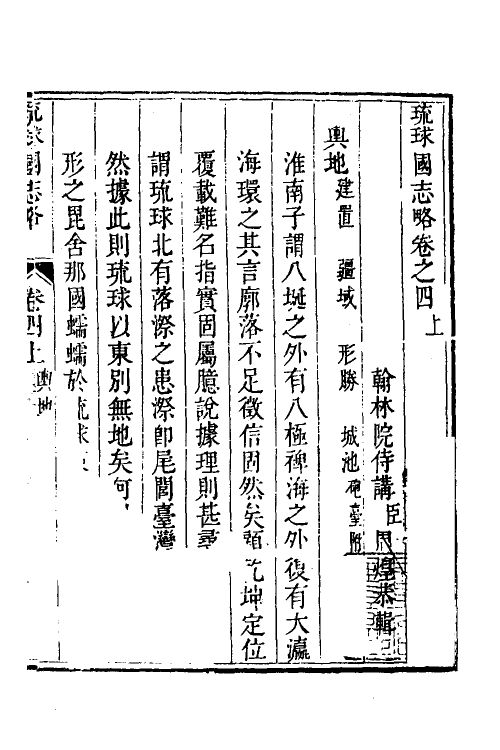 琉球國志略卷之四上
翰林院侍講臣周煌恭輯
輿地 建置 疆域 形勝 城池 砲臺附
淮南子謂八埏之外有八極裨海之外復有大瀛
海環之其言廓落不足徵信固然矣顧乾坤定位
覆載難名指實固屬臆說據理則甚尋
謂琉球北有落漈之患漈卽尾閭臺灣
然據此則琉球以東別無地矣何
形之毘舍那國蠕蠕於琉球
琉球國志略 卷四上 輿地